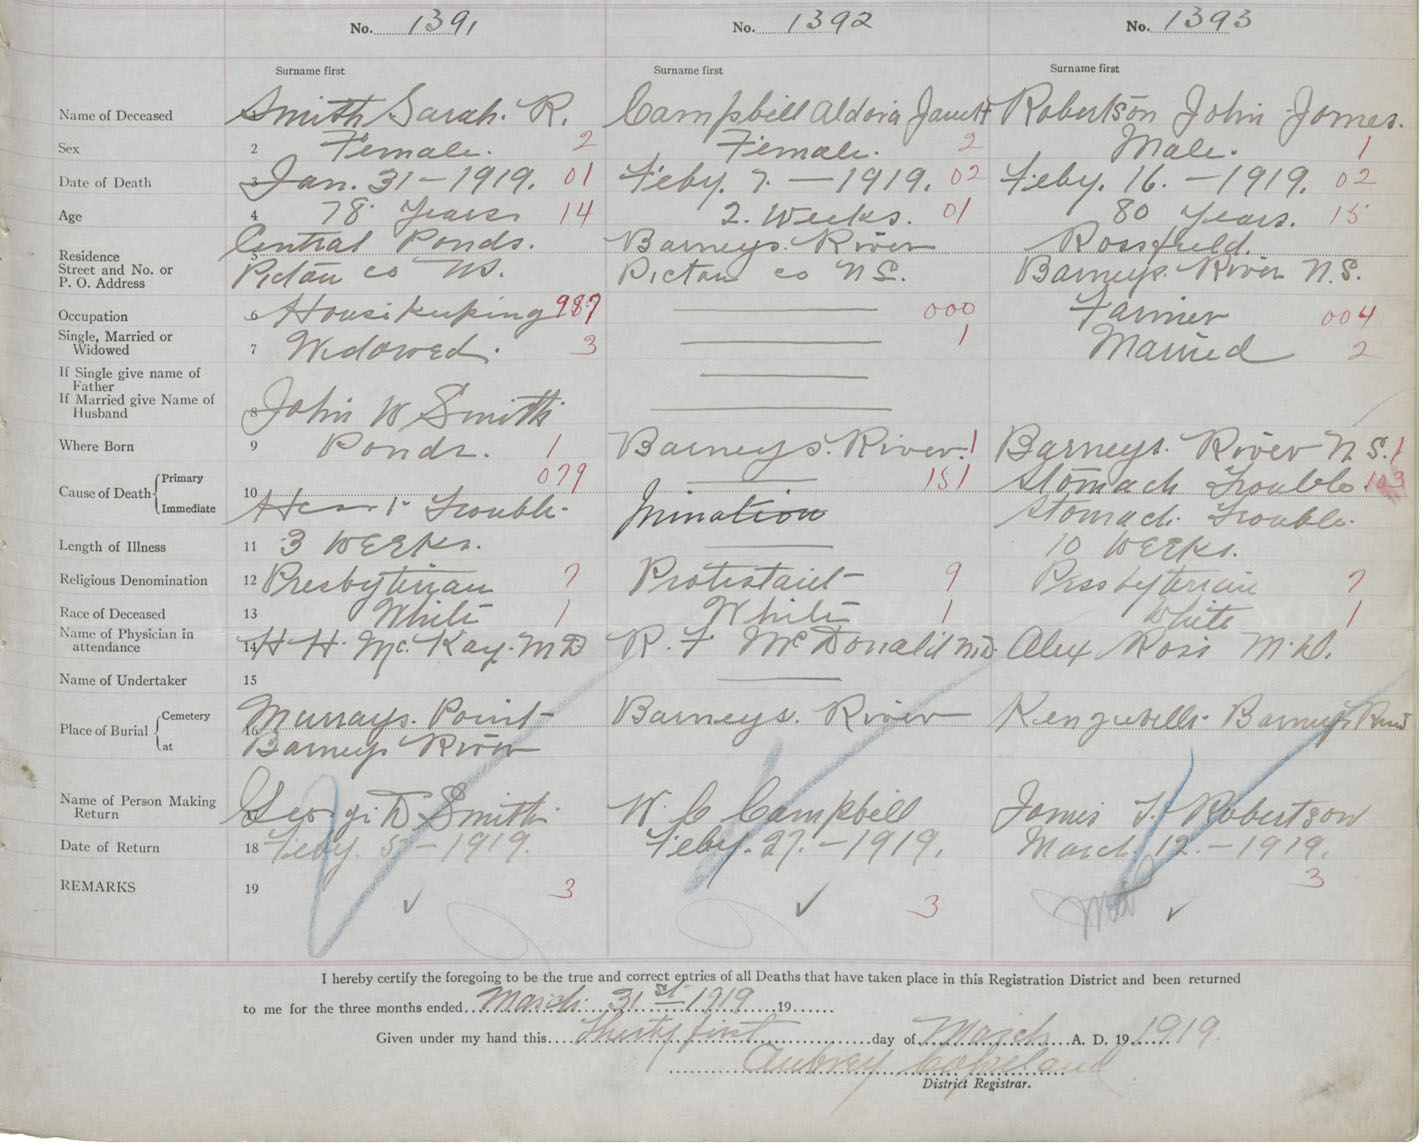 No. 1391 No. 1392 No. 1393
Surname first Surname first Surname first
Name of Deceased 1 Smith Sarah. R. Campbell Aldora Janett Robertson John James.
Sex 2 Female. 2 Female. 2 Male. 1
Date of Death 3 Jan. 31 - 1919. 01 Feby. 7. - 1919. 02 Feby. 16. - 1919. 02
Age 4 78 Years 14 2. Weeks. 01 80 Years. 15
Residence 5 Central Ponds. Barneys. River Rossfield.
Street and No. or P. O. Address Pictou co NS. Pictou co N S. Barneys. River N.S.
Occupation 6 Housekeeping 987 000 Farmer 004
Single, Married or Widowed 7 Widowed. 3 1 Married 2
If Single give name of
Father
If Married give Name of
Husband 8 John W Smith
Where Born 9 Ponds. 1 Barneys. River. 1 Barneys. River N S. 1
Cause of Death Primary 10 079 151 Stomach Trouble. 103
Immediate Heart Trouble. Stomach. Trouble.
Length of Illness 11 3 Weeks. 10 Weeks.
Religious Denomination 12 Presbyterian 7 Protestant 9 Presbyterian 7
Race of Deceased 13 White 1 White 1 White 1
Name of Physician in attendance 14 H H. Mc. Kay. M D R. F McDonald M.D. Alex Ross M.D.
Name of Undertaker 15
Place of Burial Cemetery 16 Murrays. Point Barneys. River Barneys River
at Barneys River
Name of Person Making Return 17 George D. Smith W. C Campbell James F. Robertson
Date of Return 18 Feby. 5 - 1919. Feby. 27. - 1919. March. 12. - 1919.
REMARKS 19 3 3 3
I hereby certify the foregoing to be the true and correct entries of all Deaths that have taken place in this Registration District and been returned
to me for the three months ended March. 31st 1919 19
Given under my hand this Thirty first day of March A. D. 19 1919.
Aubrey Copeland
District Registrar.